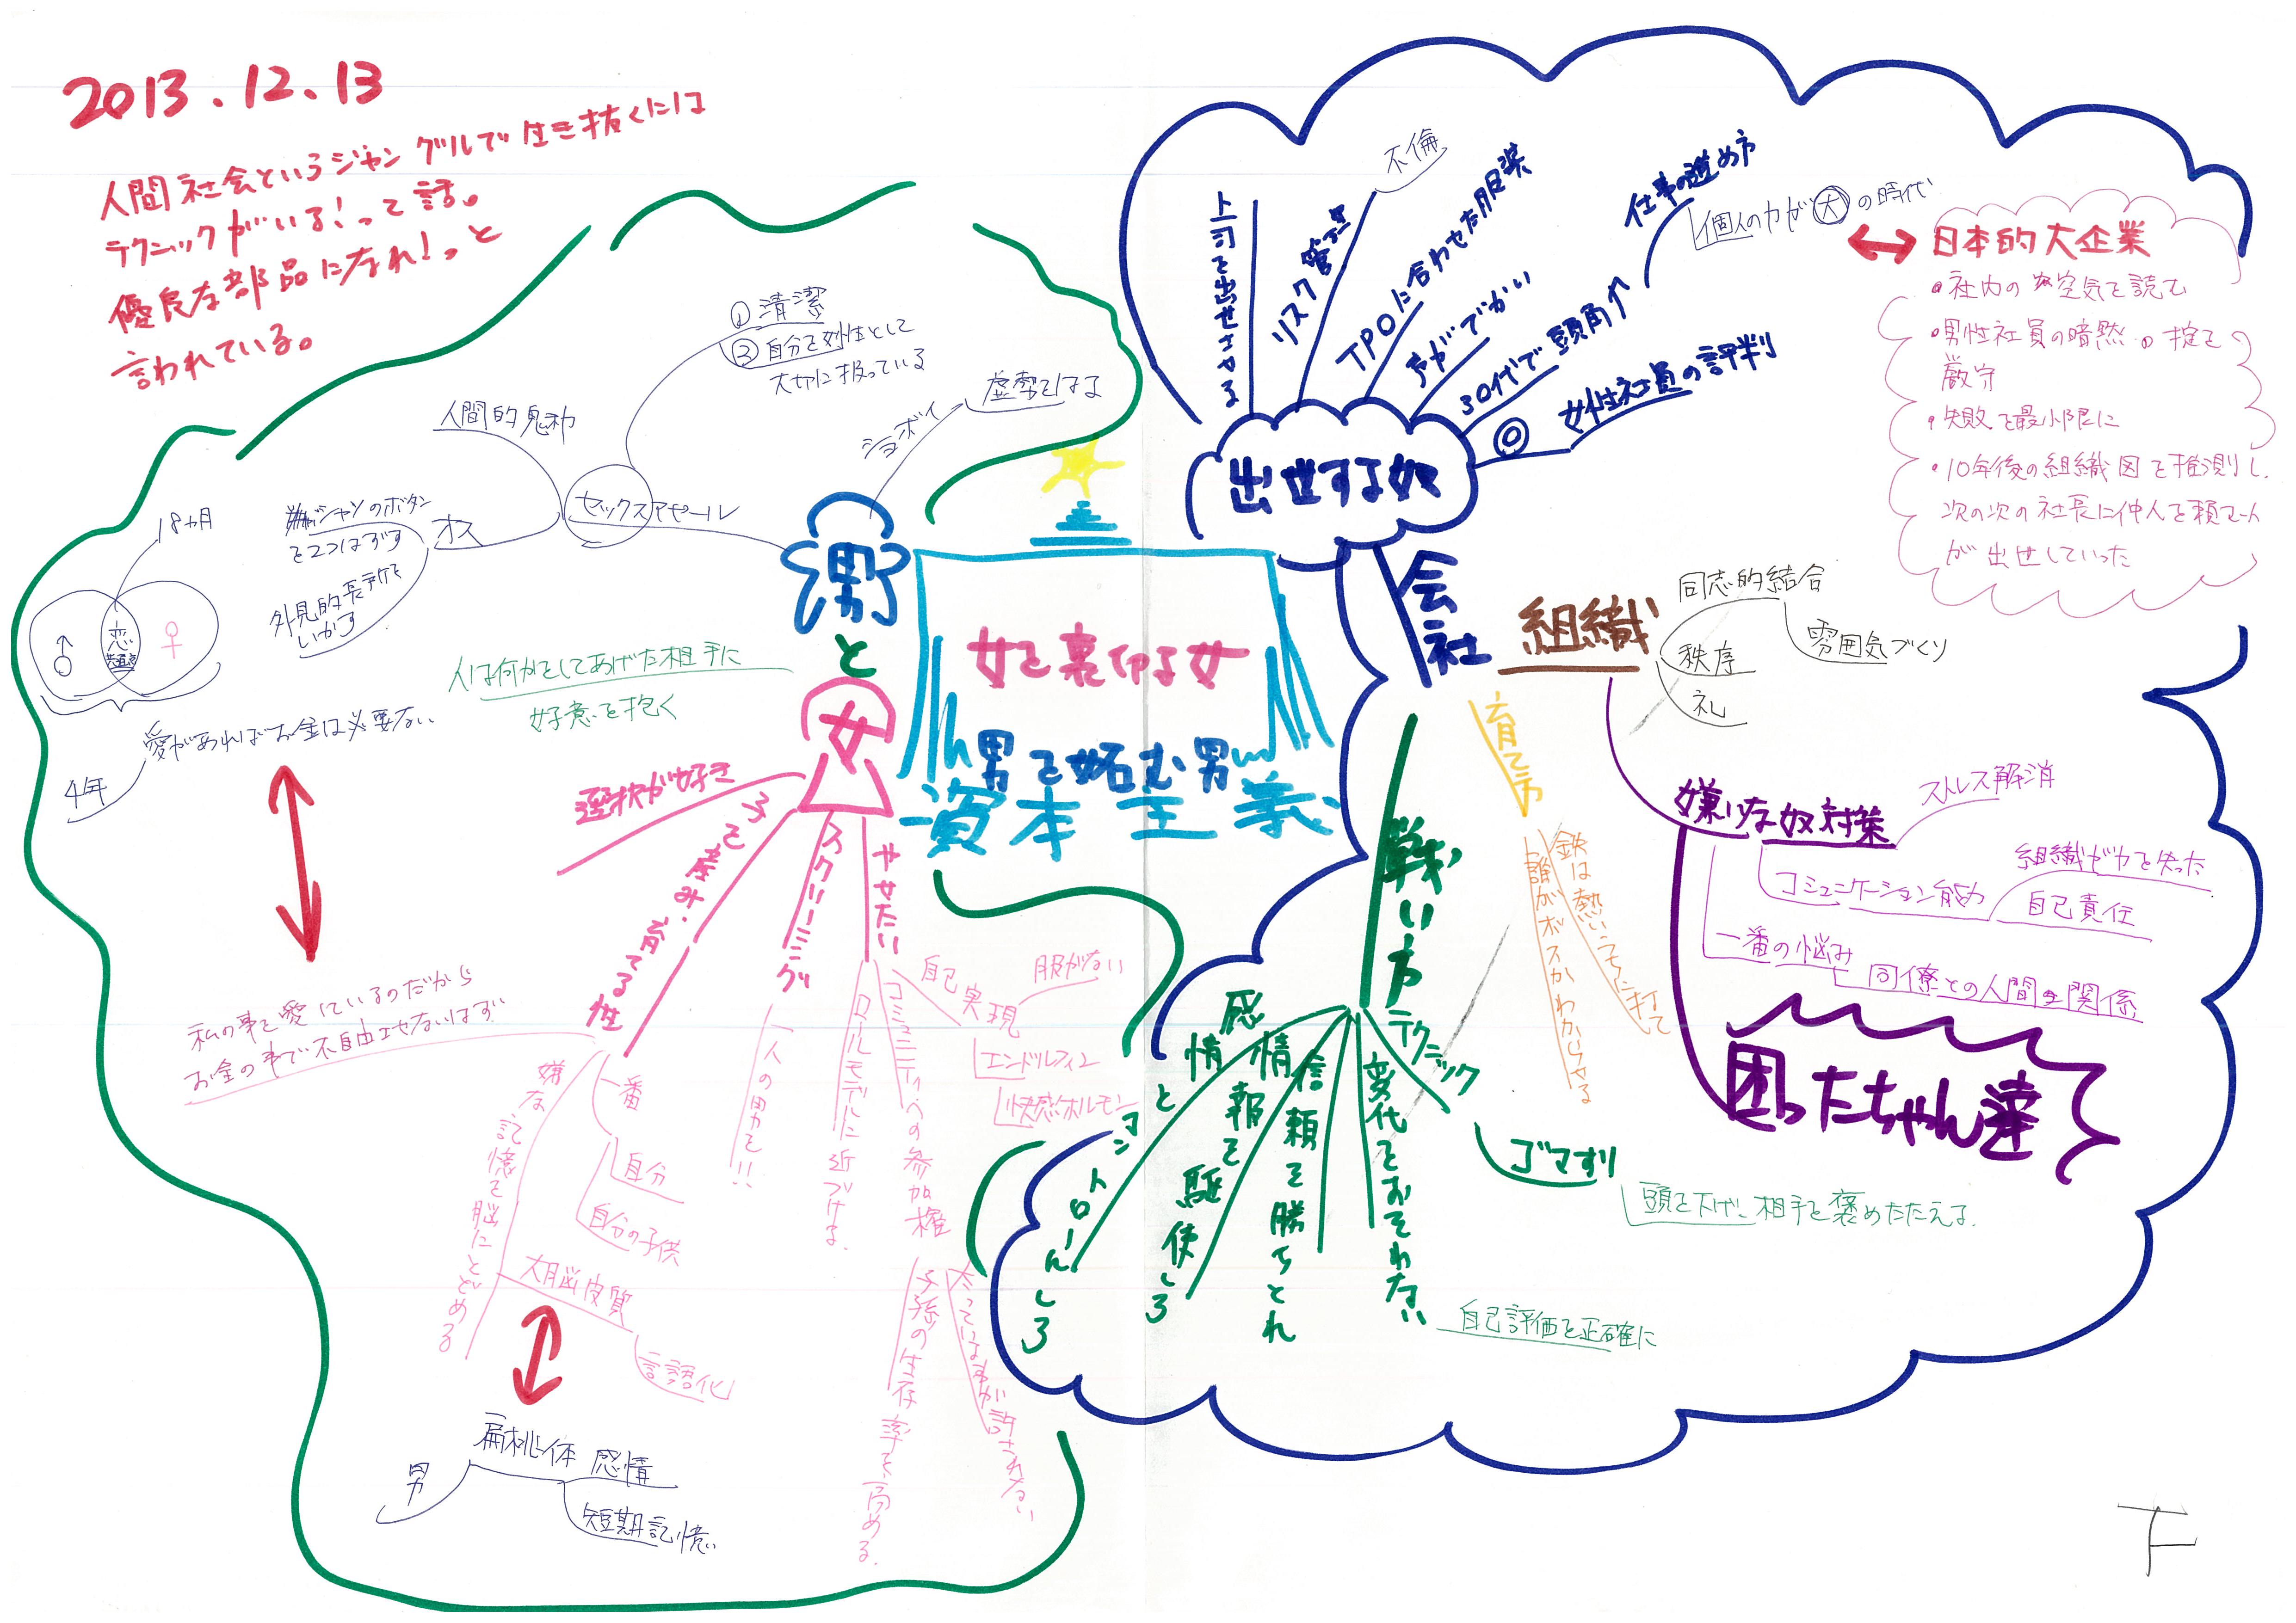 2013.12.13
人間社会というジャングルで生き抜くには
テクニックがいる!って話。
優良な部品になれ!っと
言われている。
①清潔
③自分を女性として
大切に扱っている
人間的魅力
ショボイ
虚勢をはる
セックスアピール
オス
シャツのボタン
を2つはずす
外見的長所を
いかす
18ヵ月
♂
恋
♀
愛があればお金は必要ない
4年
男
と
女
人は何かをしてあげた相手に
好意を抱く
女を裏切る女
男を妬む男
資本主義
選択が好き
子を産み、育てる性
スクリーニング
やせたい
私の事を愛しているのだから
お金の事で不自由させないはず
一番
自分
自分の子供
嫌な記憶を脳にとどめる
大脳皮質
言語化
扁桃体 感情
男
短期記憶
一人の男を!!
ロールモデルに近づける。
コミュニティへの参加権
自己実現
服がない
エンドルフィン
快感ホルモン
子孫の生存率を高める。
太っている事が許されない
出世する奴
上司を出世させる
リスク管理
不倫
TPOに合わせた服装
声がでかい
30代で頭角↑
仕事の進め方
個人の力が大の時代
◎ 女性社員の評判
日本的大企業
・社内の空気を読む
・男性社員の暗黙の掟を
厳守
・失敗を最小限に
・10年後の組織図を推測し、
次の次の社長に仲人を頼む人
が出世していった
会社
組織
同志的結合
雰囲気づくり
秩序
礼
育て方
鉄は熱いうちに打て
誰がボスかわからせる
嫌いな奴対策
ストレス解消
コミュニケーション能力
組織が力を失った
自己責任
一番の悩み
同僚との人間関係
困ったちゃん達
戦い方
テクニック
ゴマすり
頭を下げ、相手を褒めたたえる。
変化をおそれない
自己評価を正確に
信頼を勝ちとれ
情報を駆使しろ
感情をコントロールしろ
下